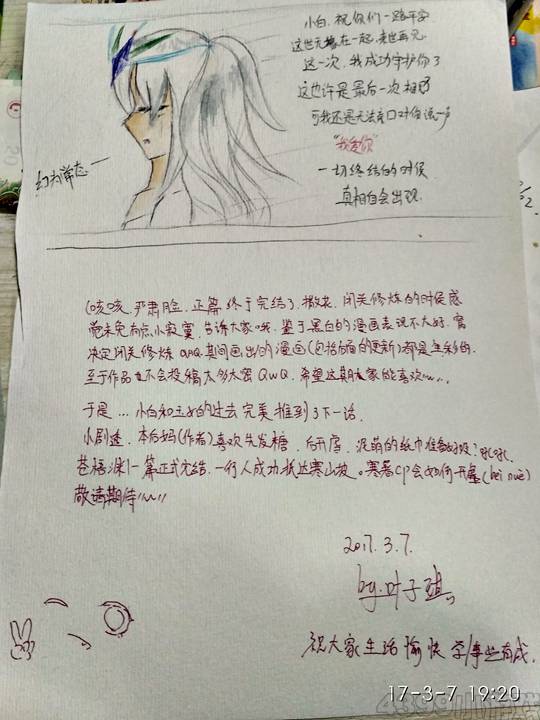 小白,祝你们一路平安
这世无缘在一起,来世再见
这一次,我成功守护你了
这也许是最后一次相见
可我还是无法亲口对你说一声
"我爱你"
一切终结的时候
真相自会出现
幻为常态
(咳咳,严肃脸,正篇终于完结了,撒花,闭关修炼的时候感
觉未免有点小寂寞,告诉大家哦,鉴于黑白的漫画表现不太好,窝
决定闭关修炼QAQ期间画出的漫画(包括后面的更新)都是上彩的.
至于作品也不会投稿太多太密QWQ,希望这期大家能喜欢~~..
于是...小白和主的过去完美推到了下一话.
小剧透,本后妈(作者)喜欢先发糖,后开虐,
一篇正式完结,一行人成功抵达寒山坡。寒暮CP会如何开虐(bei nüè)
敬请期待~~
2017.3.7.
by:叶子琪
祝大家生活愉快 学/事业有成.
17-3-7 19:20